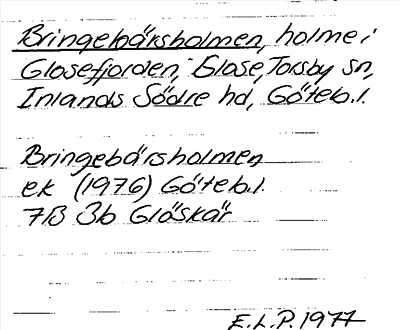 Bringebärsholmen, holme i
Glosefjorden, Glose, Torsby sn,
Inlands Södre hd, Göteb.l.
Bringebärsholmen
ek (1976) Göteb.l.
7B 3b Glöskär
E.L.P. 1977